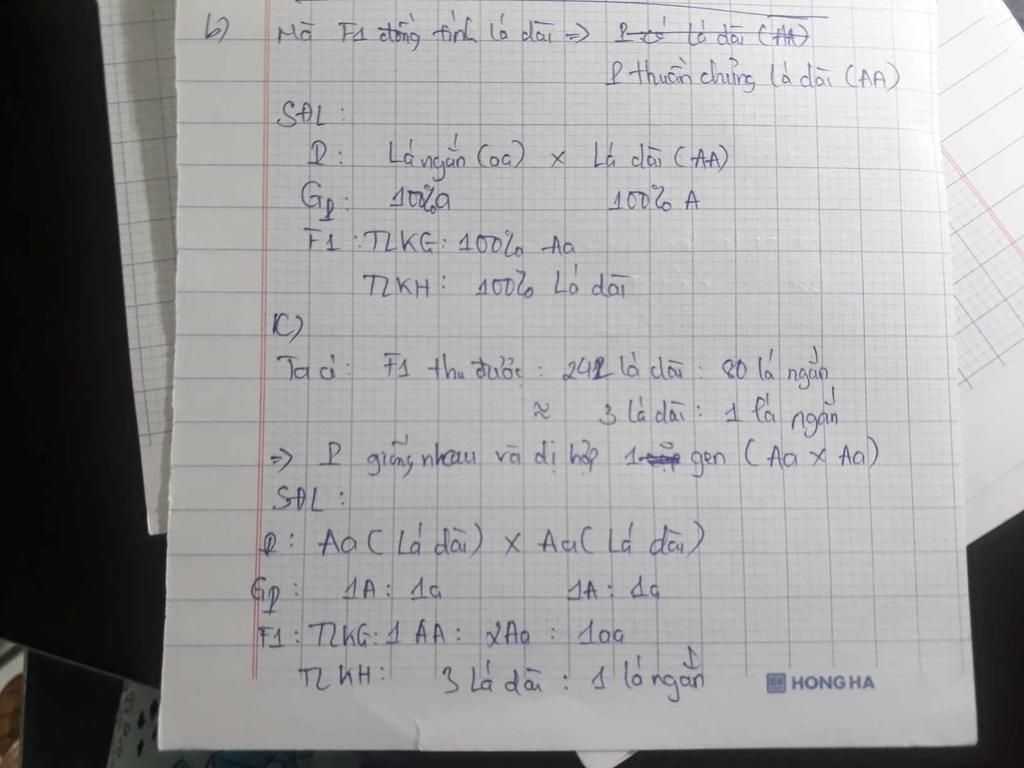 b) Mà F1 đồng tính lá dài => P có lá dài (AA)
P thuần chủng lá dài (AA)
SĐL:
P: Lá ngắn (aa) x Lá dài (AA)
GP: 100%a 100% A
F1: TLKG: 100% Aa
TLKH: 100% Lá dài
c)
Ta có: F1 thu được: 242 lá dài: 80 lá ngắn
≈ 3 lá dài: 1 lá ngắn
=> P giống nhau và dị hợp 1 gen (Aa x Aa)
SĐL:
P: Aa (Lá dài) x Aa (Lá dài)
GP: 1A: 1a 1A: 1a
F1: TLKG: 1 AA: 2Aa: 1aa
TLKH: 3 Lá dài: 1 lá ngắn
HONG HA